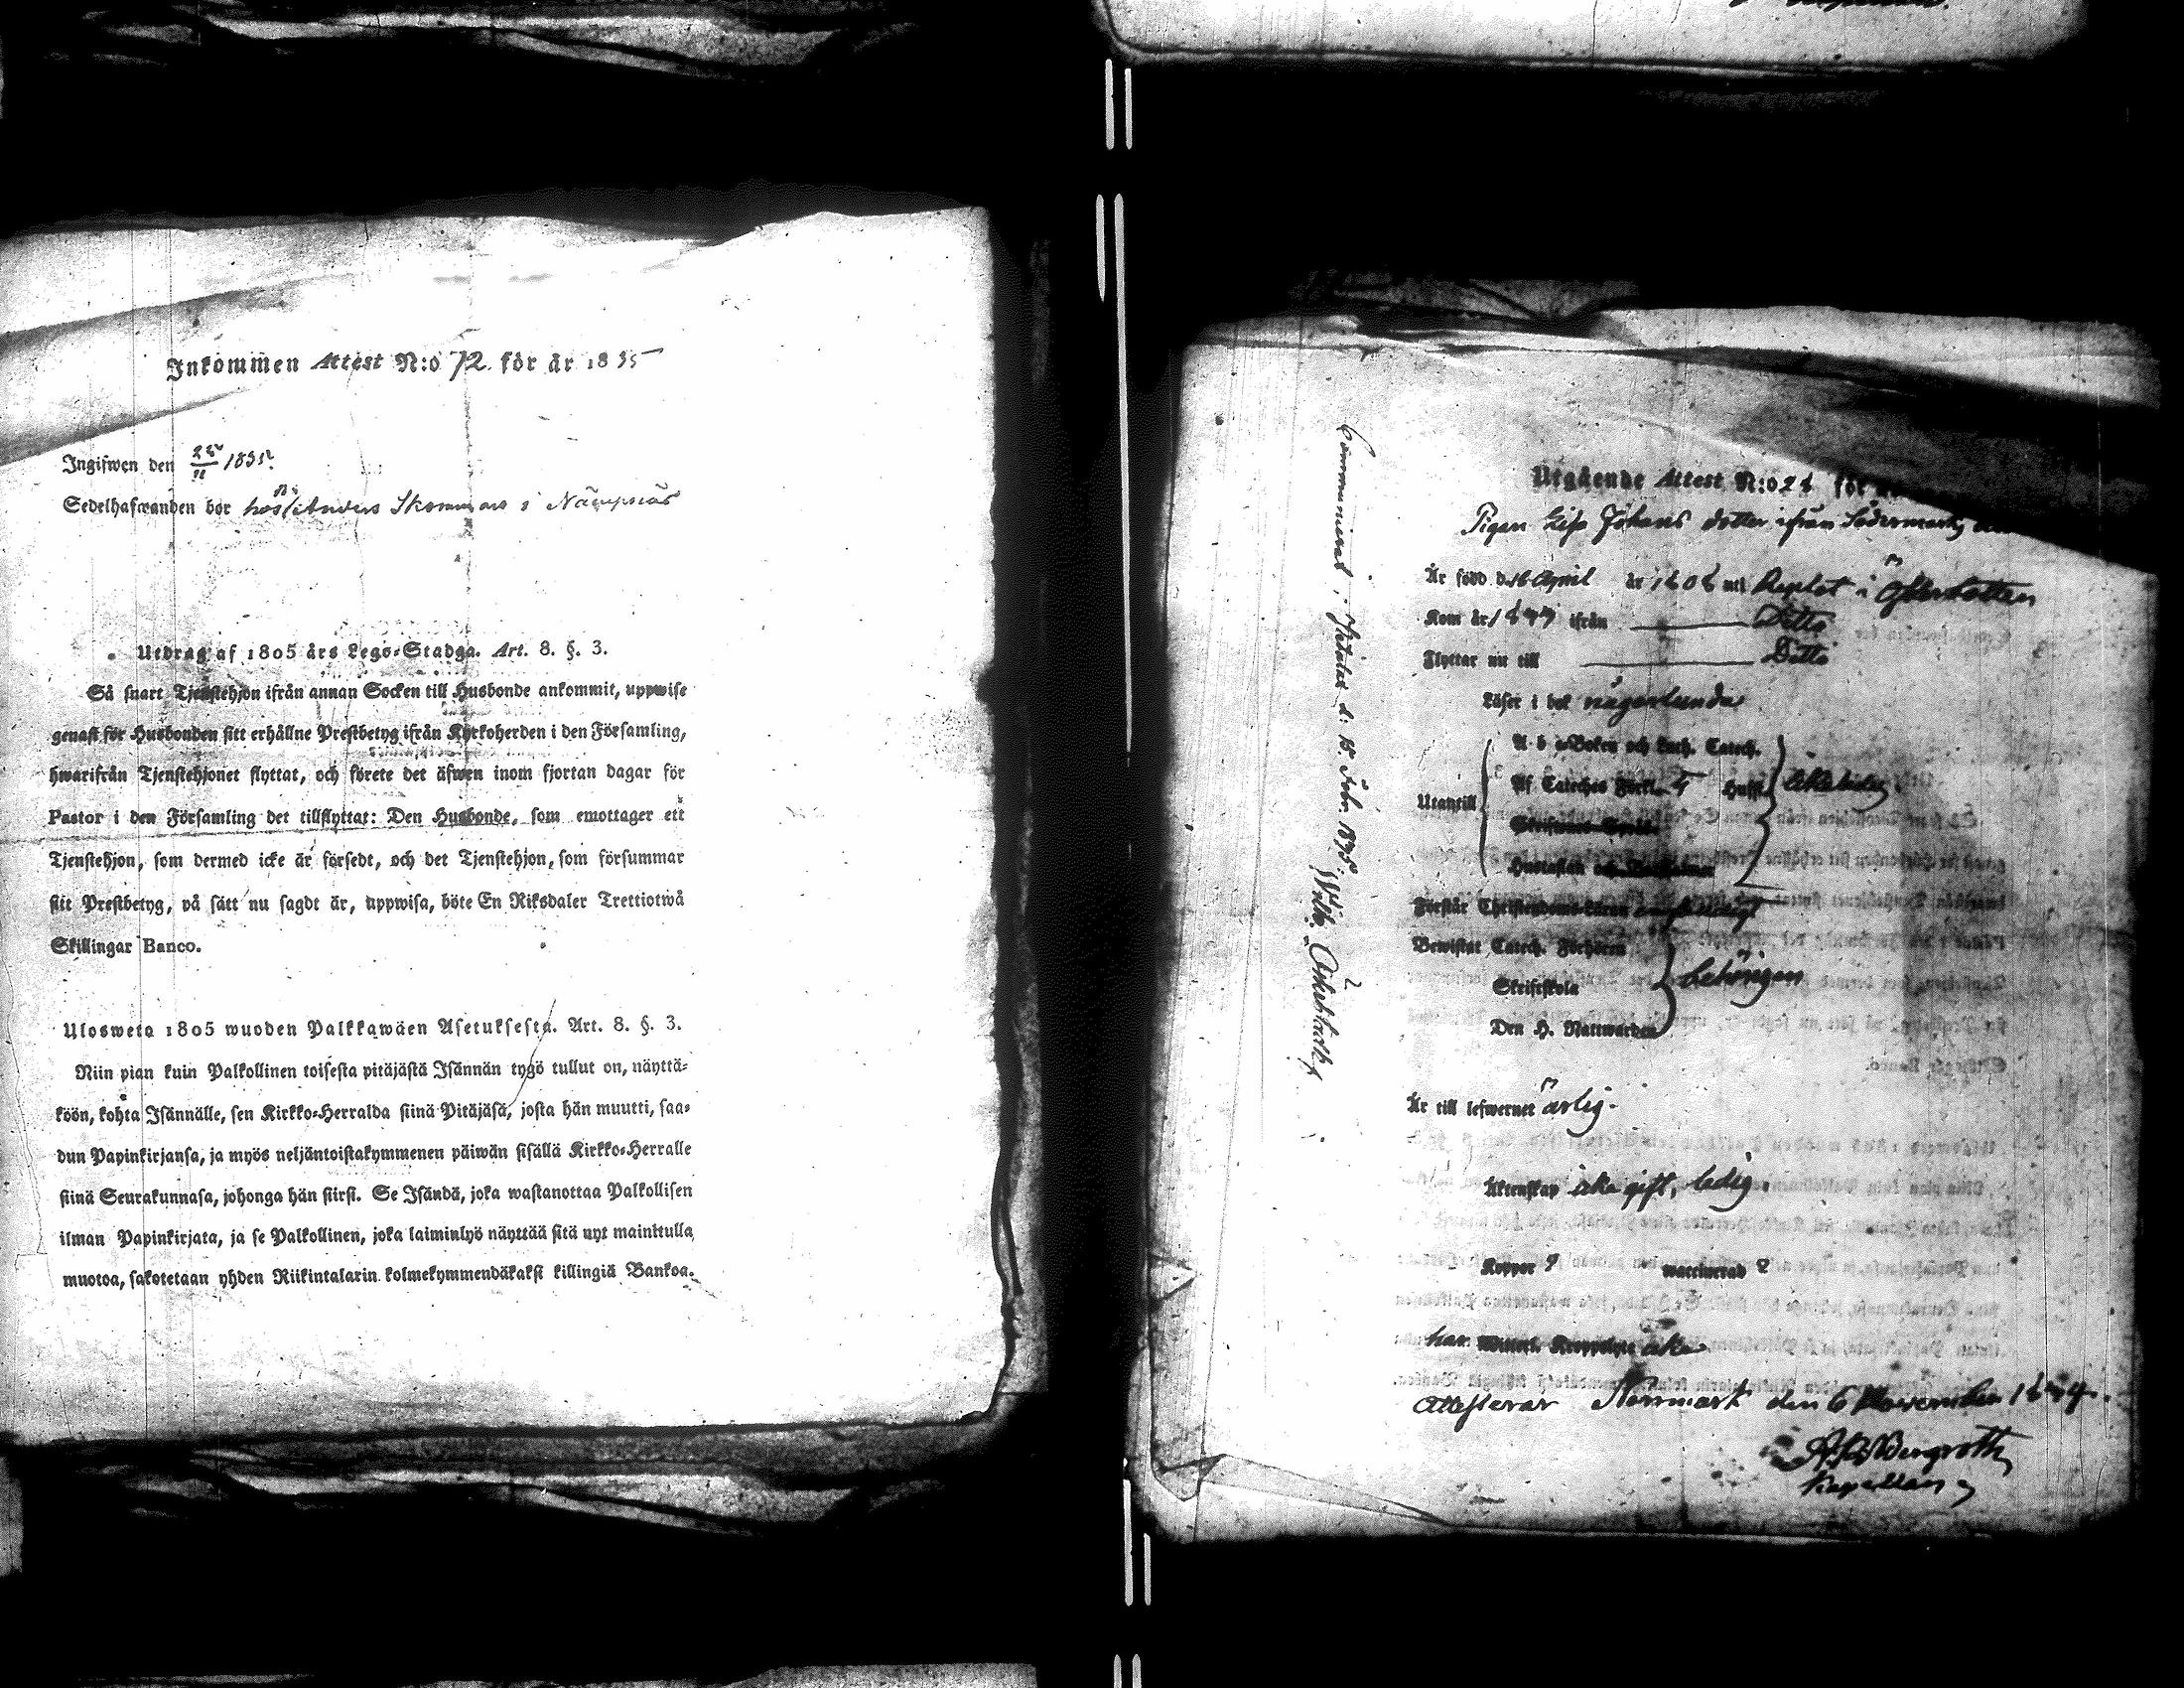 Inkommen Attest N:o 72 för år 1835
Ingifwen den 22/11 1835.
Sedelhafwanden bor hos Anders Skommars i Nämpnäs
Utdrag af 1805 års Lego-Stadga. Art. 8. §. 3.
Så snart Tjenstehjon ifrån annan Socken till Husbonde ankommit, uppwise
genast för Husbonden sitt erhållne Prestbetyg ifrån Kyrkoherden i den Församling,
hwarifrån Tjenstehjonet flyttat, och förete det äfwen inom fjortan dagar för
Pastor i den Församling det tillflyttat: Den Husbonde, som emottager ett
Tjenstehjon, som dermed icke är försedt, och det Tjenstehjon, som försummar
sitt Prestbetyg, på sätt nu sagdt är, uppwisa, böte En Riksdaler Trettiotwå
Skillingar Banco.
Ulosweto 1805 wuoden Palkkawäen Asetuksesta. Art. 8. §. 3.
Niin pian kuin Palkollinen toisesta pitäjästä Isännän tygö tullut on, näyttä-
köön, kohta Isännälle, sen Kirkko-Herralda siinä Pitäjäsä, josta hän muutti, saa-
dun Papinkirjansa, ja myös neljäntoistakymmenen päiwän sisällä Kirkko-Herralle
siinä Seurakunnasa, johonga hän siirsi. Se Isändä, joka wastanottaa Palkollisen
ilman Papinkirjata, ja se Palkollinen, joka laiminlyö näyttää sitä nyt mainitulla
muotoa, sakotetaan yhden Riikintalarin kolmekymmendäkaksi killingiä Bankoa.
Communicerat i d. 15 Febr. 1835.
Utgående Attest N:o 28 för
Pigan Lisa Johans dotter ifrån Södermark
Är född d. 16 April år 1808 uti Replot i Österbotten
Kom år 1834 ifrån Ditto
Flyttar nu till Ditto
Läser i bok någorlunda
Utantill
A b c-Boken och Luth. Catech.
Af Cateches Förkl. 5 Husst.
Skriftenes Språk
Hustaflan och
Förstår Christendoms-Läran
Bewistat Catech. Förhören
Skriftskola behörigen
Den H. Nattwarden
Är till lefwernet ärlig.
Äktenskap icke gift, ledig.
Koppor ? waccinerad ?
har icke
Attesterar Norrmark den 6 November 1834.
Bergroth
Kapellan